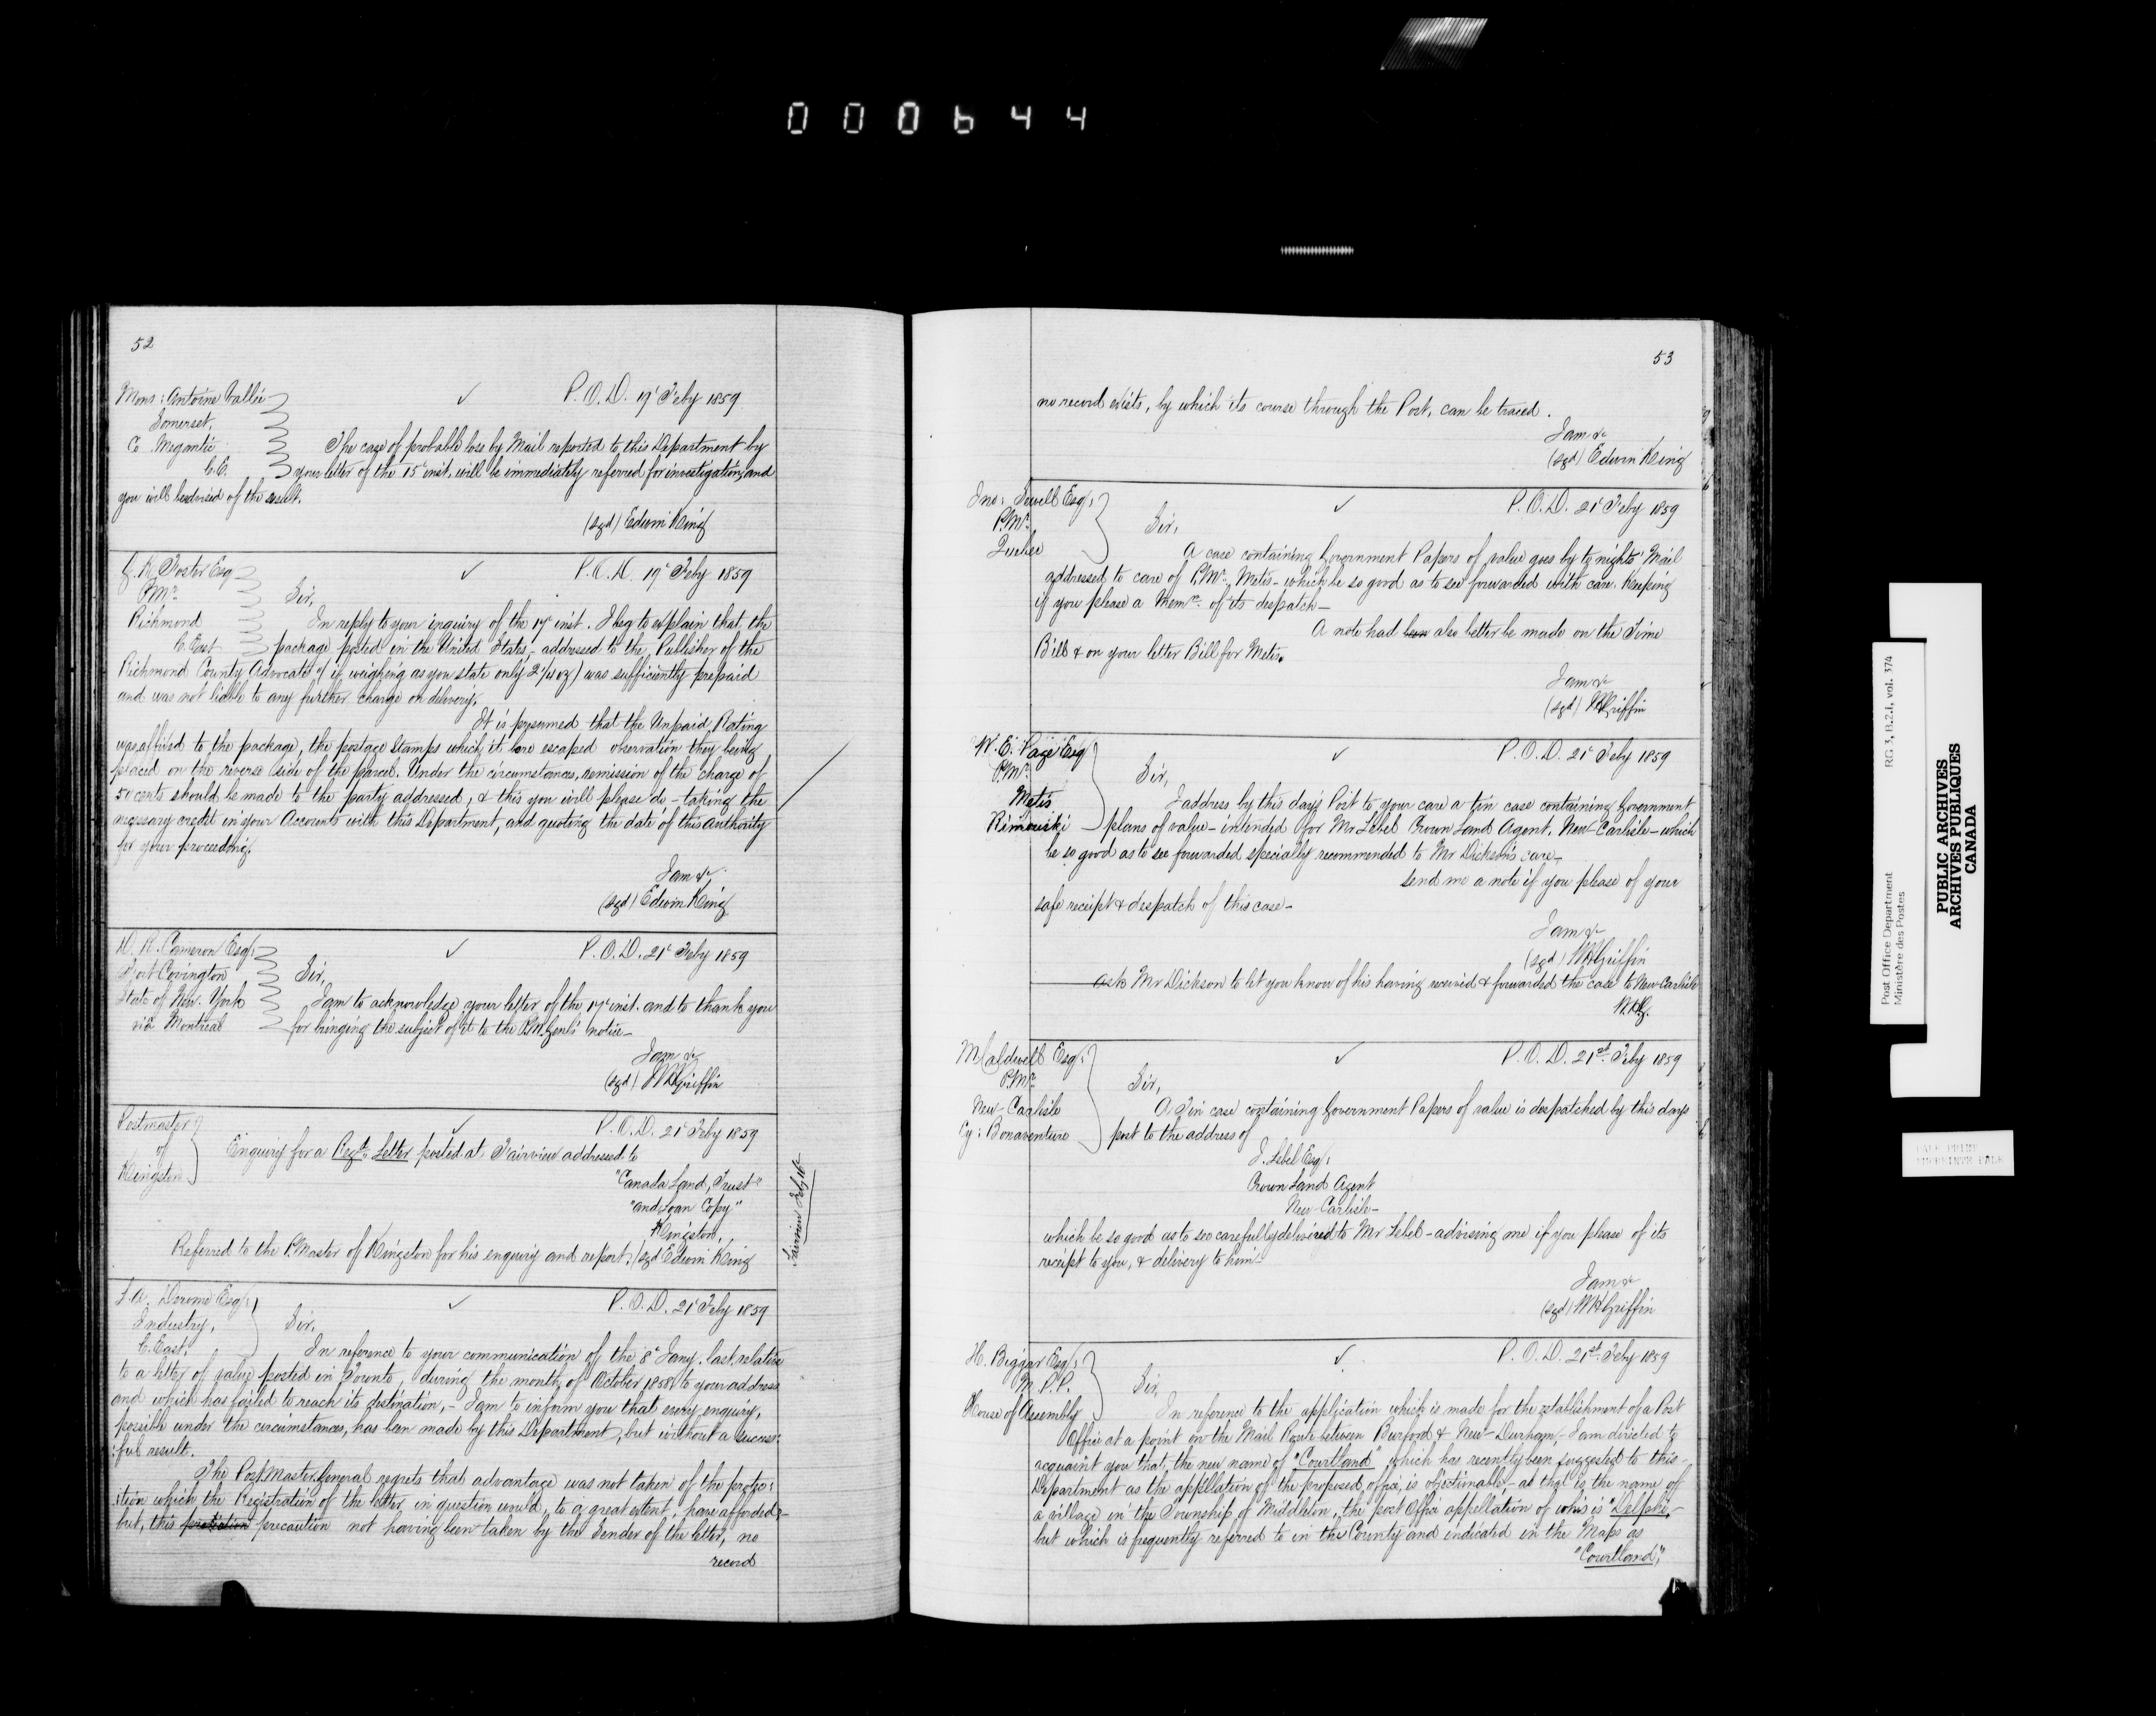 000644
52
Mons: Antoine Vallée
Somerset,
Co. Megantic
C.E.
✓ P.O.D. 19t Feby 1859
The case of probable loss by Mail reported to this Department by
your letter of the 15t inst. will be immediately referred for investigation, and
you will be advised of the result.
(sgd) Edwin King
G. K. Foster Esq
P.Mr.
Richmond
C. East
✓ P.O.D. 19t Feby 1859
Sir,
In reply to your inquiry of the 17t inst. I beg to explain that, the
package posted in the United States, addressed to the Publisher of the
Richmond County Advocate, (if weighing as you state only 2 1/4 oz) was sufficiently prepaid
and was not liable to any further charge on delivery.
It is presumed that the Unpaid Rating
was affixed to the package, the postage stamps which it bore escaped observation they being
placed on the reverse side of the parcel. Under the circumstances, remission of the charge of
50 cents should be made to the party addressed, & this you will please do - taking the
necessary credit in your Accounts with this Department, and quoting the date of this authority
for your proceeding.
I am &c
(sgd) Edwin King
D. R. Cameron Esq:
Fort Covington
State of New York
via Montreal
✓ P.O.D. 21t Feby 1859
Sir,
I am to acknowledge your letter of the 17t inst. and to thank you
for bringing the subject of it to the P.M. Genl's notice -
I am &c
(sgd) WHGriffin
Postmaster
of
Kingston
✓ P.O.D. 21t Feby 1859
Enquiry for a Regd. Letter posted at Fairview addressed to
"Canada Land, Trust"
"and Loan Copy"
Kingston,
Referred to the P.Master of Kingston for his enquiry and report. (sgd Edwin King
Fairview
✓ P.O.D. 21t Feby 1859
Derome Esq:
Industry,
C. East.
Sir,
In reference to your communication of the 8t Jany. last, relative
to a letter of value posted in Toronto, during the month of October 1858, to your address
and which has failed to reach its destination, - I am to inform you that every enquiry,
possible under the circumstances, has been made by this Department, but without a success:
:ful result.
The Post Master General regrets that advantage was not taken of the protec:
:tion which the Registration of the letter in question would, to a great extent, have afforded -
but, this protection precaution not having been taken by the Sender of the letter, no
record
53
no record exists, by which its course through the Post, can be traced.
I am &c
(sgd) Edwin King
Jno: Sewell Esq:
P.Mr.
Quebec
✓ P.O.D. 21t Feby 1859
Sir,
A case containing Government Papers of value goes by to nights' Mail
addressed to care of P.Mr. Metis - which be so good as to see forwarded with care. Keeping
if you please a Memm. of its despatch -
A note had been also better be made on the Time
Bill & on your letter Bill for Metis.
I am &c
(sgd) WHGriffin
W. E. Page Esq
P.Mr.
Metis
Rimouski
✓ P.O.D. 21t Feby 1859
Sir,
I address by this day's Post to your care a tin case containing Government
plans of value - intended for Mr Lebel Crown Land Agent, New-Carlisle - which
be so good as to see forwarded specially recommended to Mr Dickson's care -
Send me a note if you please of your
safe receipt & despatch of this case -
I am &c
(sgd) WHGriffin
Ask Mr Dickson to let you know of his having received & forwarded the case to New-Carlisle
W.H.G.
M Caldwell Esq:
P.Mr.
New-Carlisle
Cy: Bonaventure
✓ P.O.D. 21st Feby 1859
Sir,
A Tin case containing Government Papers of value is despatched by this days
post to the address of
J. Lebel Esq:
Crown Land Agent
New-Carlisle -
which be so good as to see carefully delivered to Mr Lebel - advising me if you please of its
receipt to you, & delivery to him -
I am &c
(sgd) WHGriffin
H. Biggar Esq:
M.P.P.
House of Assembly
✓ P.O.D. 21st Feby 1859
Sir,
In reference to the application which is made for the establishment of a Post
Office at a point on the Mail Route between Burford & New-Durham, - I am directed to
acquaint you that, the new name of "Courtland" which has recently been suggested to this
Department as the appellation of the proposed office, is objectionable, - as that is the name of
a village in the Township of Middleton, the post Office appellation of which is "Delphi,"
but which is frequently referred to in the County and indicated in the Maps as
"Courtland,"
Post Office Department
Ministère des Postes
RG 3, B.2.1, vol. 374
PUBLIC ARCHIVES
ARCHIVES PUBLIQUES
CANADA
PALE PRINT